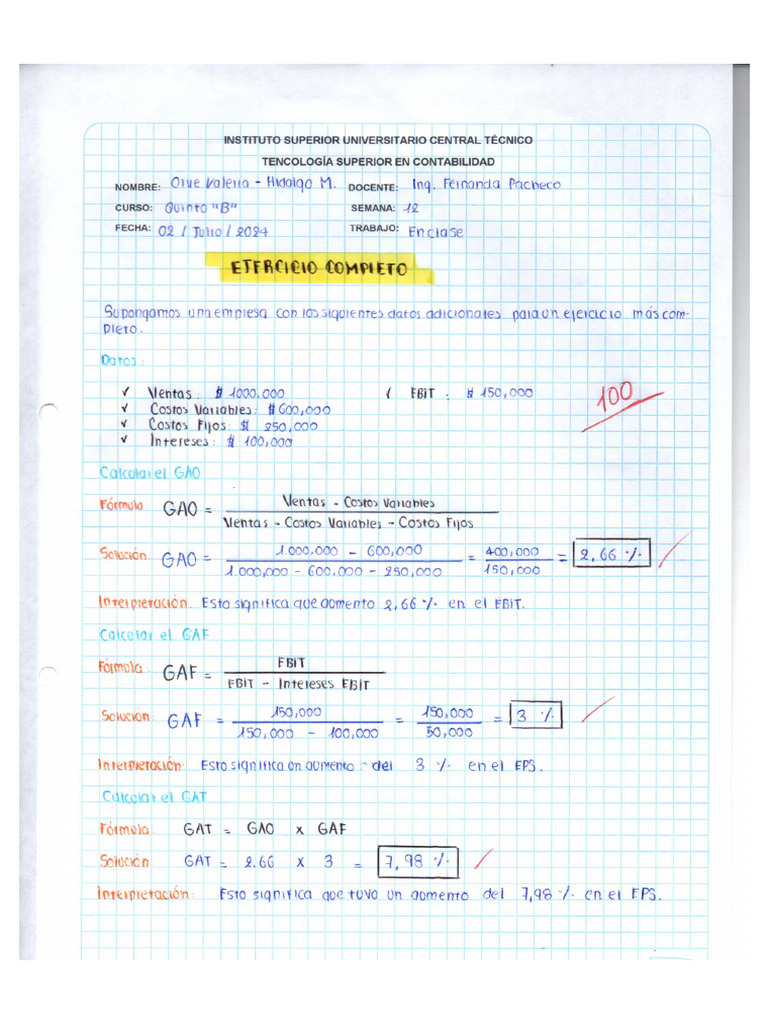 INSTITUTO SUPERIOR UNIVERSITARIO CENTRAL TÉCNICO
TENCOLOGÍA SUPERIOR EN CONTABILIDAD
NOMBRE: Valeria - Hidalgo M. DOCENTE: Ing. Fernanda Pacheco
CURSO: Quinto "B" SEMANA: 12
FECHA: 02 / Julio / 2024 TRABAJO: Enclase
EJERCICIO COMPLETO
Supongamos una empresa con los siguientes datos adicionales para un ejercicio más com-
pleto.
Datos:
✓ Ventas: $ 1000.000 ✓ EBIT: $ 150,000
100
✓ Costos Variables: $ 600,000
✓ Costos Fijos: $ 250,000
✓ Intereses: $ 100,000
Calcular el GAO
Fórmula: GAO = Ventas - Costos Variables
Ventas - Costos Variables - Costos Fijos
Solución: GAO = 1.000,000 - 600,000 = 400,000 = 2,66 %
1.000,000 - 600,000 - 250,000 150,000
Interpretación: Esto significa que aumento 2,66 % en el EBIT.
Calcular el GAF
Fórmula: GAF = EBIT
EBIT - Intereses EBIT
Solución: GAF = 150,000 = 150,000 = 3 %
150,000 - 100,000 50,000
Interpretación: Esto significa un aumento - del 3 % en el EPS.
Calcular el GAT
Fórmula: GAT = GAO x GAF
Solución: GAT = 2.66 x 3 = 7,98 %
Interpretación: Esto significa que tuvo un aumento del 7,98 % en el EPS.